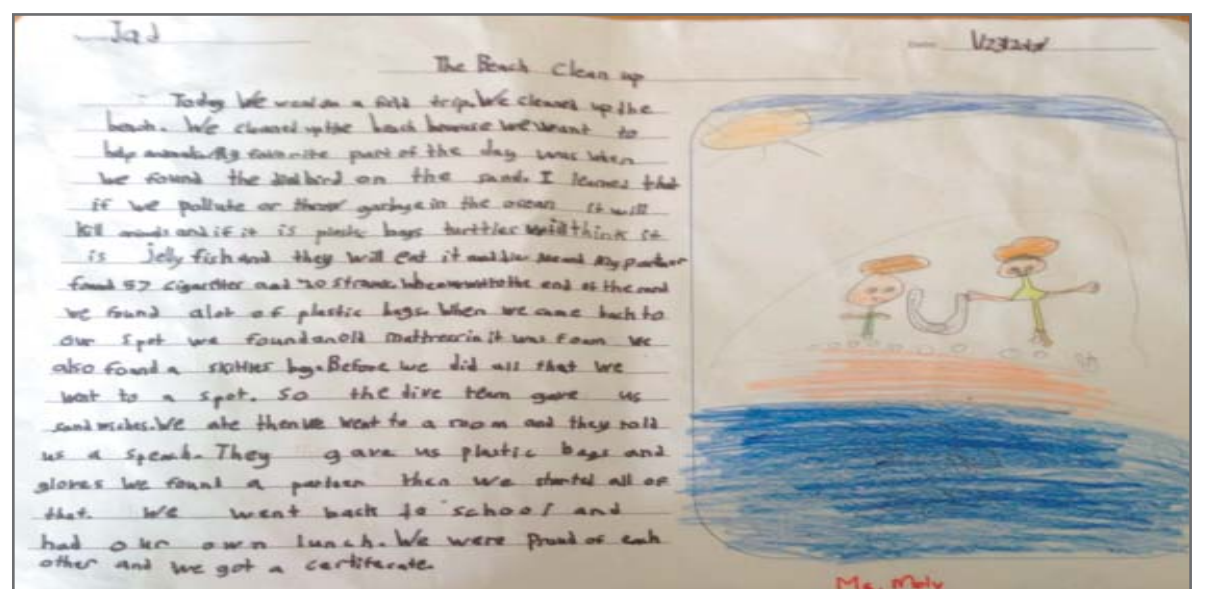 Jad
The Beach Clean up
Today We went on a field trip. We cleaned up the
beach. We cleaned up the beach because we want to
help animals. My favorite part of the day was when
we found the dead bird on the sand. I learned that
if we pollute or throw garbage in the ocean it will
kill and if it is plastic bags turttles will think it
is Jelly fish and they will eat it and die. Me and My partner
found 57 cigarettes and 20 straws. When we went to the end of the
we found alot of plastic bags. When we came back to
our spot we found an old mattress in it was foam we
also found a skittles bag. Before we did all that we
went to a spot. so the dive team gave us
sandwiches. We ate then we went to a room and they told
us a speach. They gave us plastic bags and
gloves we found a partner then we started all of
that. We went back to school and
had our own lunch. We were Proud of each
other and we got a certiferate.
Ms. Mely